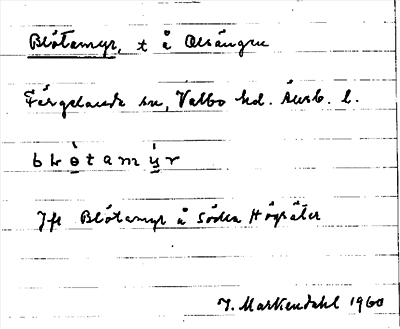 Blötamyr, t å Ålsängen
Färgelanda sn, Valbo hd. Älvsb. l.
bløtamyr
Jfr Blötamyr å Södra Högsäter
J. Markendahl 1960